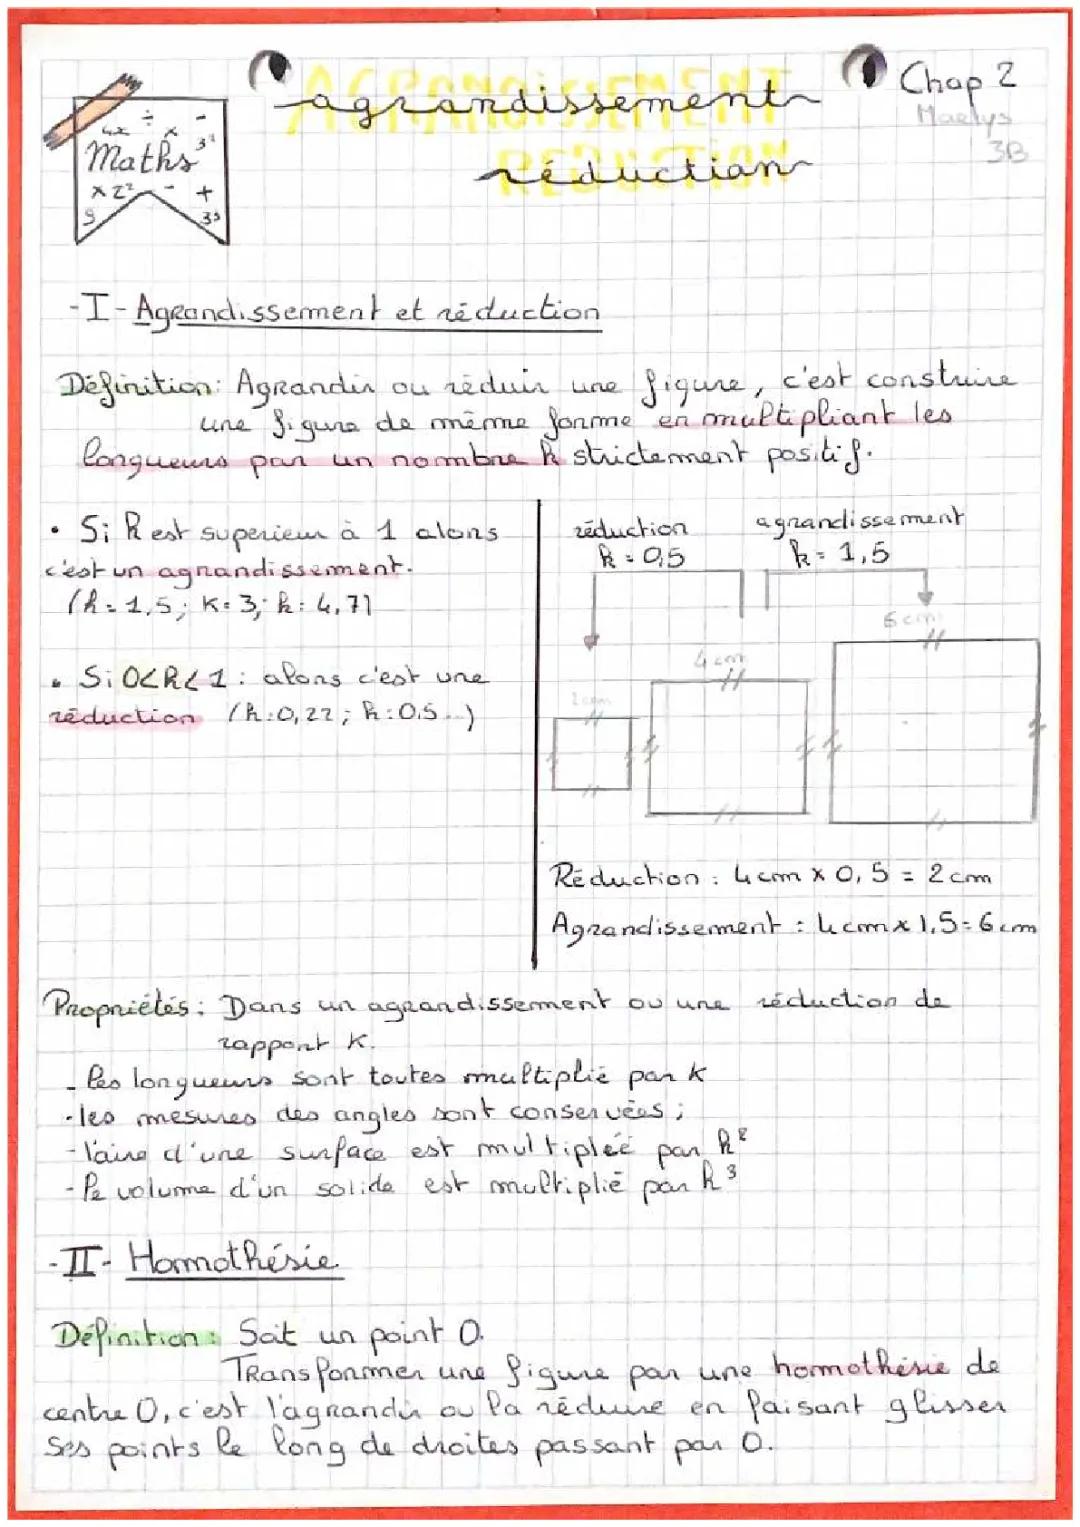 AGRANDiSSEMENT
agrandissement
REDUCTION
réduction
Chap 2
Maelys
3B
4x ÷ x -
Maths 3²
x 2² - +
9 3³
-I- Agrandissement et réduction
Définition: Agrandir ou réduir une figure, c'est construire
une figure de même forme en multipliant les
longueurs par un nombre k strictement positif.
• Si k est superieur à 1 alors
c'est un agrandissement.
(k = 1,5; K= 3; k: 4,7)
• Si 0<k<1: alors c'est une
réduction (k:0,22; k:0,5...)
réduction
k = 0,5
agrandissement
k = 1,5
2 cm
4 cm
6 cm
Réduction : 4 cm x 0,5 = 2 cm
Agrandissement : 4 cm x 1,5 = 6 cm
Propriétés: Dans un agrandissement ou une réduction de
rapport K.
- les longueurs sont toutes multiplié par K
- les mesures des angles sont conservées;
- l'aire d'une surface est multipleé par k²
- le volume d'un solide est multiplié par k³
-II- Homothésie
Définition: Soit un point O.
Transformer une figure par une homothésie de
centre O, c'est l'agrandir ou la réduire en faisant glisser
ses points le long de droites passant par O.